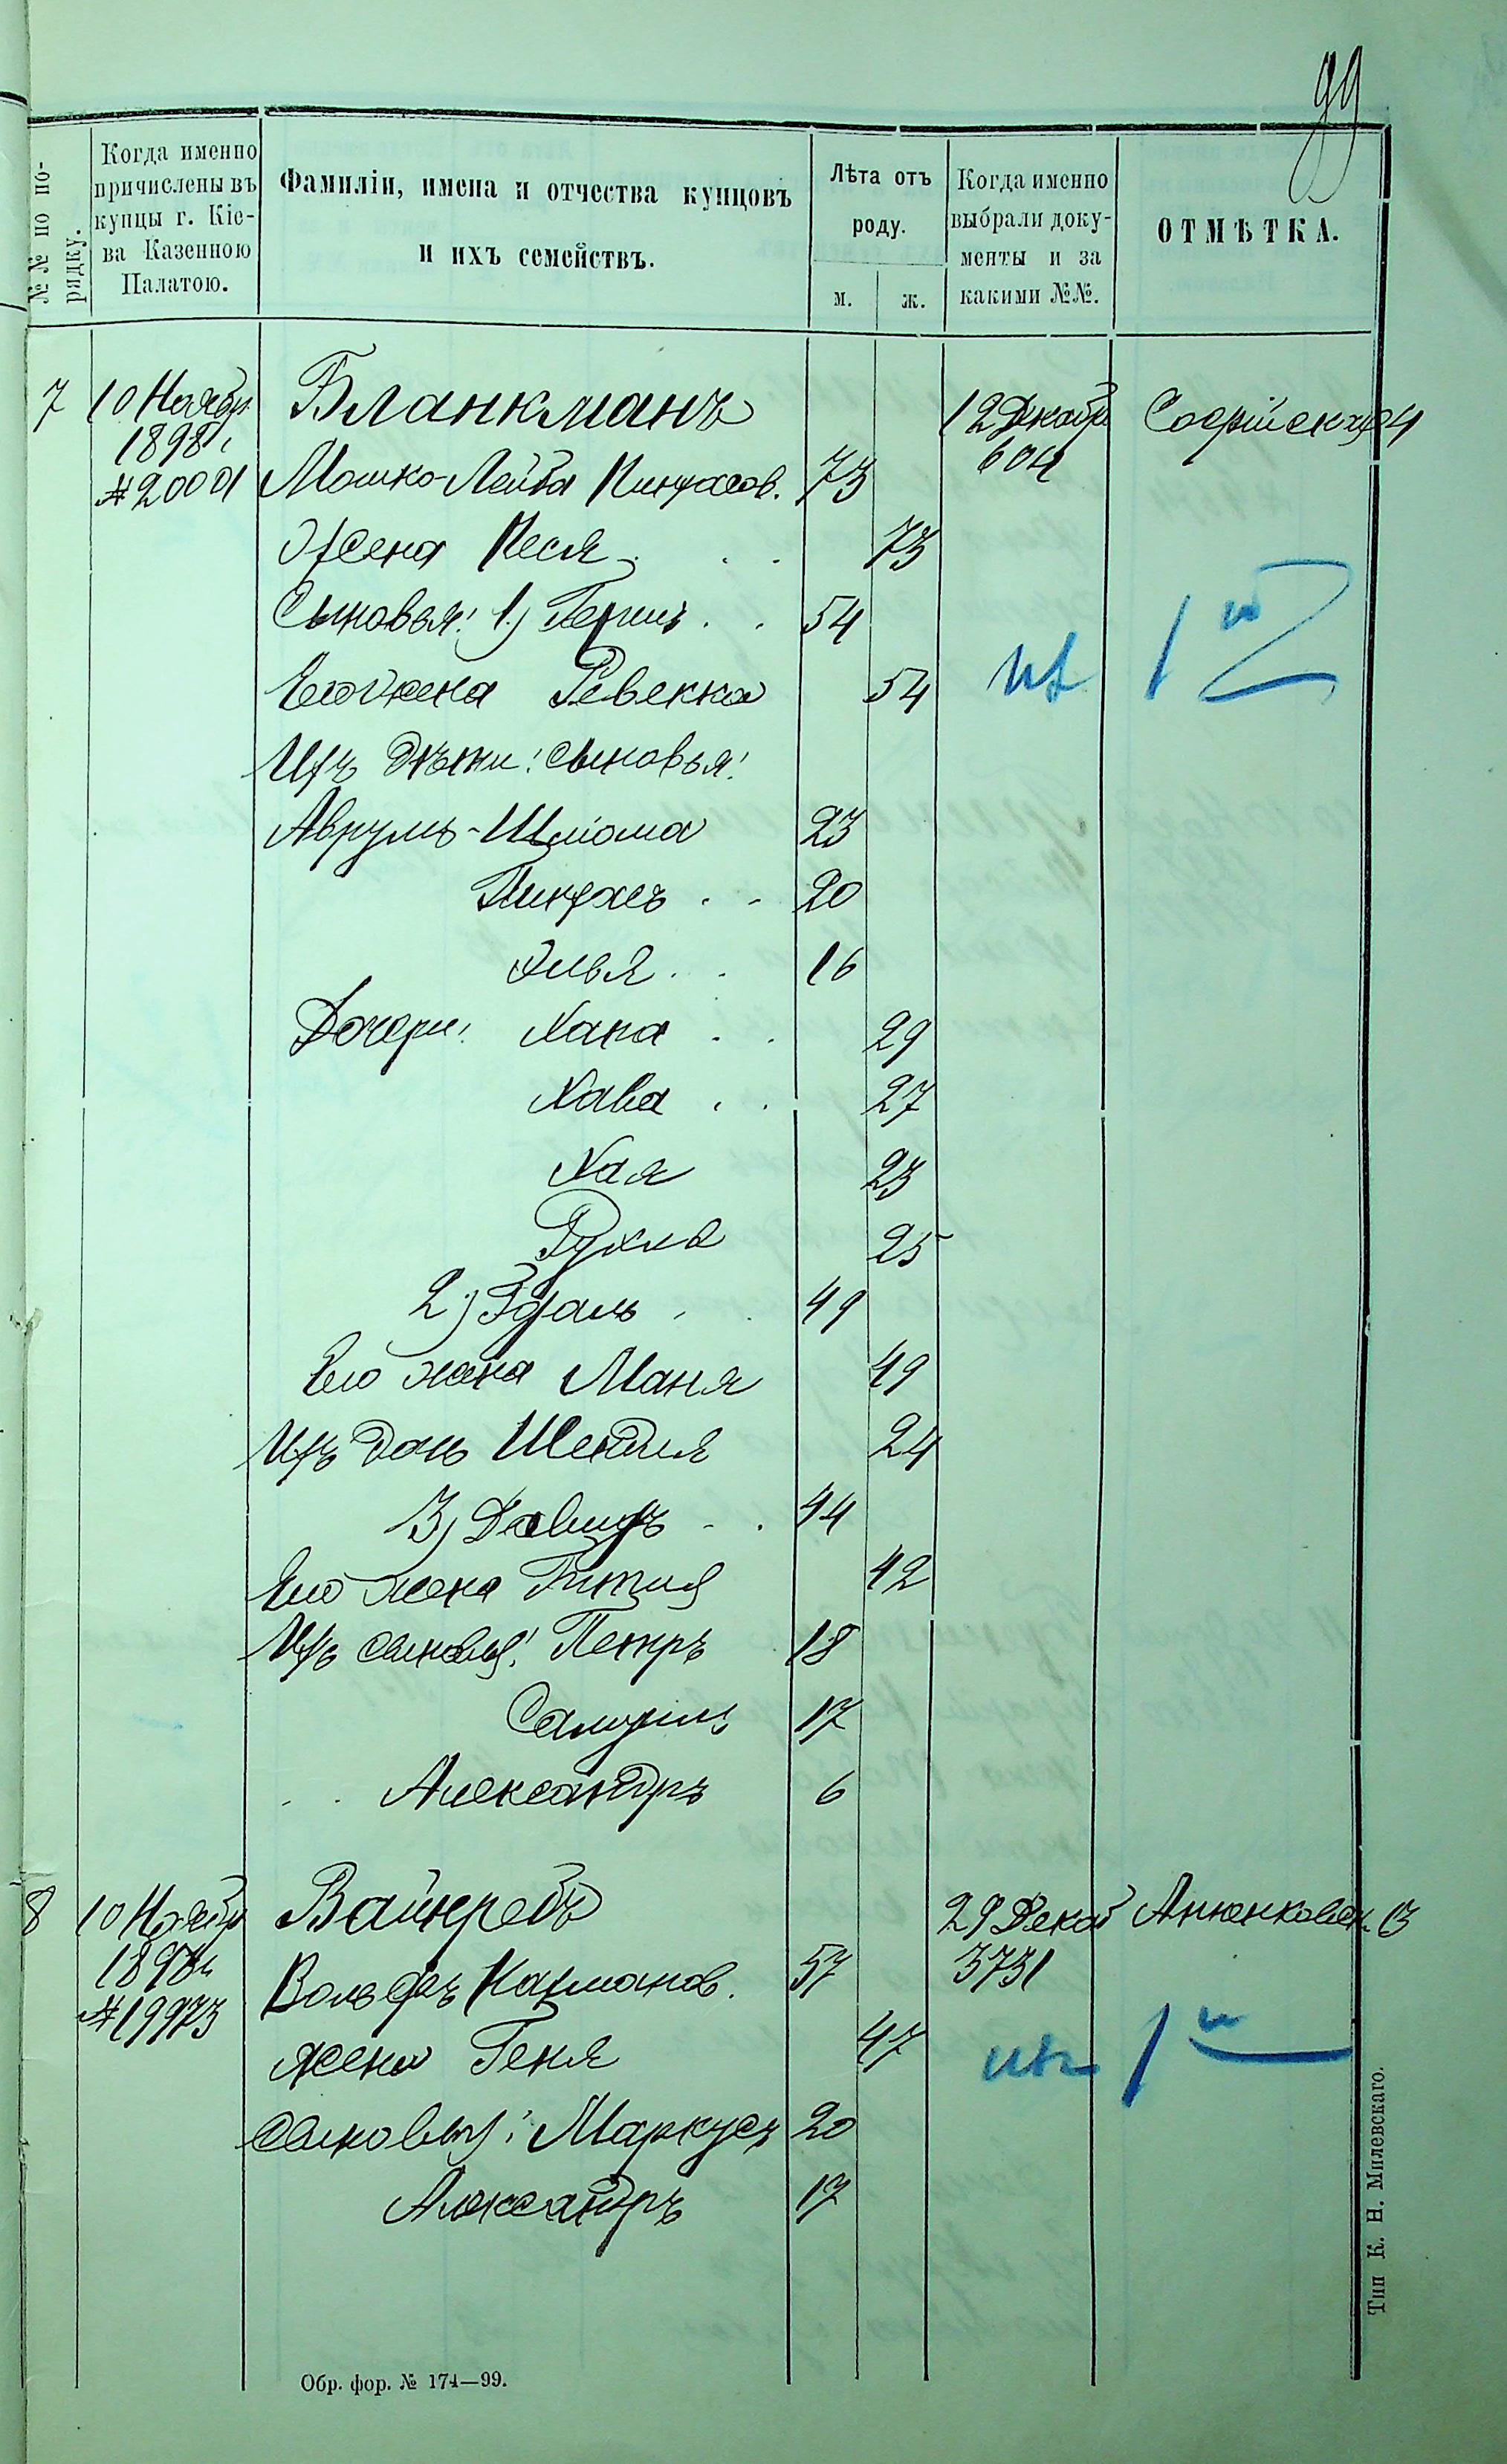 99
№№ по по-
рядку.
Когда именно
причислены въ
купцы г. Кіе-
ва Казенною
Палатою.
Фамиліи, имена и отчества купцовъ
и ихъ семействъ.
Лѣта отъ
роду.
м. ж.
Когда именно
выбрали доку-
менты и за
какими №№.
ОТМѢТКА.
7 10 Ноября Бланкманъ 12 Декабр Софійская 4
1898 г. 604
№ 20001 Мошко-Лейба Пинхасов. 73
Жена Песя 73
Сыновья: 1) Гершъ 54
Его жена Ревекка 54
Ихъ дѣти: сыновья:
Аврумъ-Шлиома 23
Пинхасъ 20
Элья 16
Дочери: Хана 29
Хава 27
Хая 23
Рухля 25
2) Эфаль 49
Его жена Маня 49
Ихъ дочь Шендля 24
3) Давидъ 44
Его жена Гитля 42
Ихъ сыновья: Петръ 18
Самуилъ 17
Александръ 6
8 10 Ноябр Вайнребъ 29 Декаб Анненковск. 13
1898 г. 3731
№ 19973 Вольфъ Нахманов. 57
жена Геня 47
сыновья: Маркусъ 20
Александръ 17
Обр. фор. № 174—99.
Тип К. Н. Милевскаго.